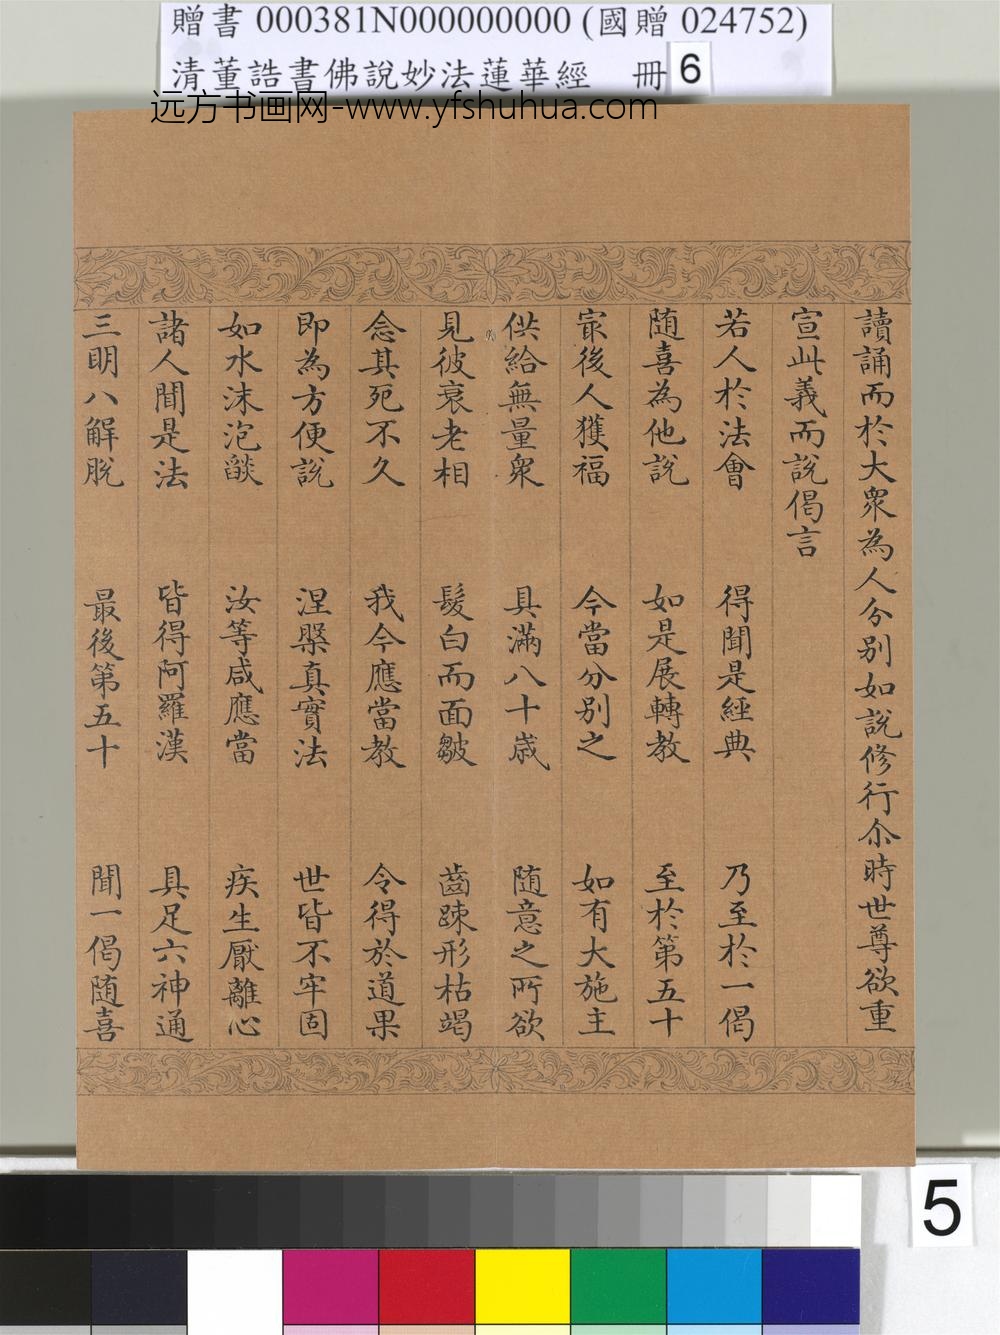 贈書 000381N000000000 (國贈 024752)
清董誥書佛說妙法蓮華經 冊 6
远方书画网-www.yfshuhua.com
讀誦而於大眾為人分別如說修行尒時世尊欲重
宣此義而說偈言
若人於法會 得聞是經典 乃至於一偈
随喜為他說 如是展轉教 至於第五十
冣後人獲福 今當分別之 如有大施主
供給無量衆 具滿八十歳 随意之所欲
見彼衰老相 髮白而面皺 齒踈形枯竭
念其死不久 我今應當教 令得於道果
即為方便說 涅槃真實法 世皆不牢固
如水沫泡燄 汝等咸應當 疾生厭離心
諸人聞是法 皆得阿羅漢 具足六神通
三明八解脫 最後第五十 聞一偈随喜
5